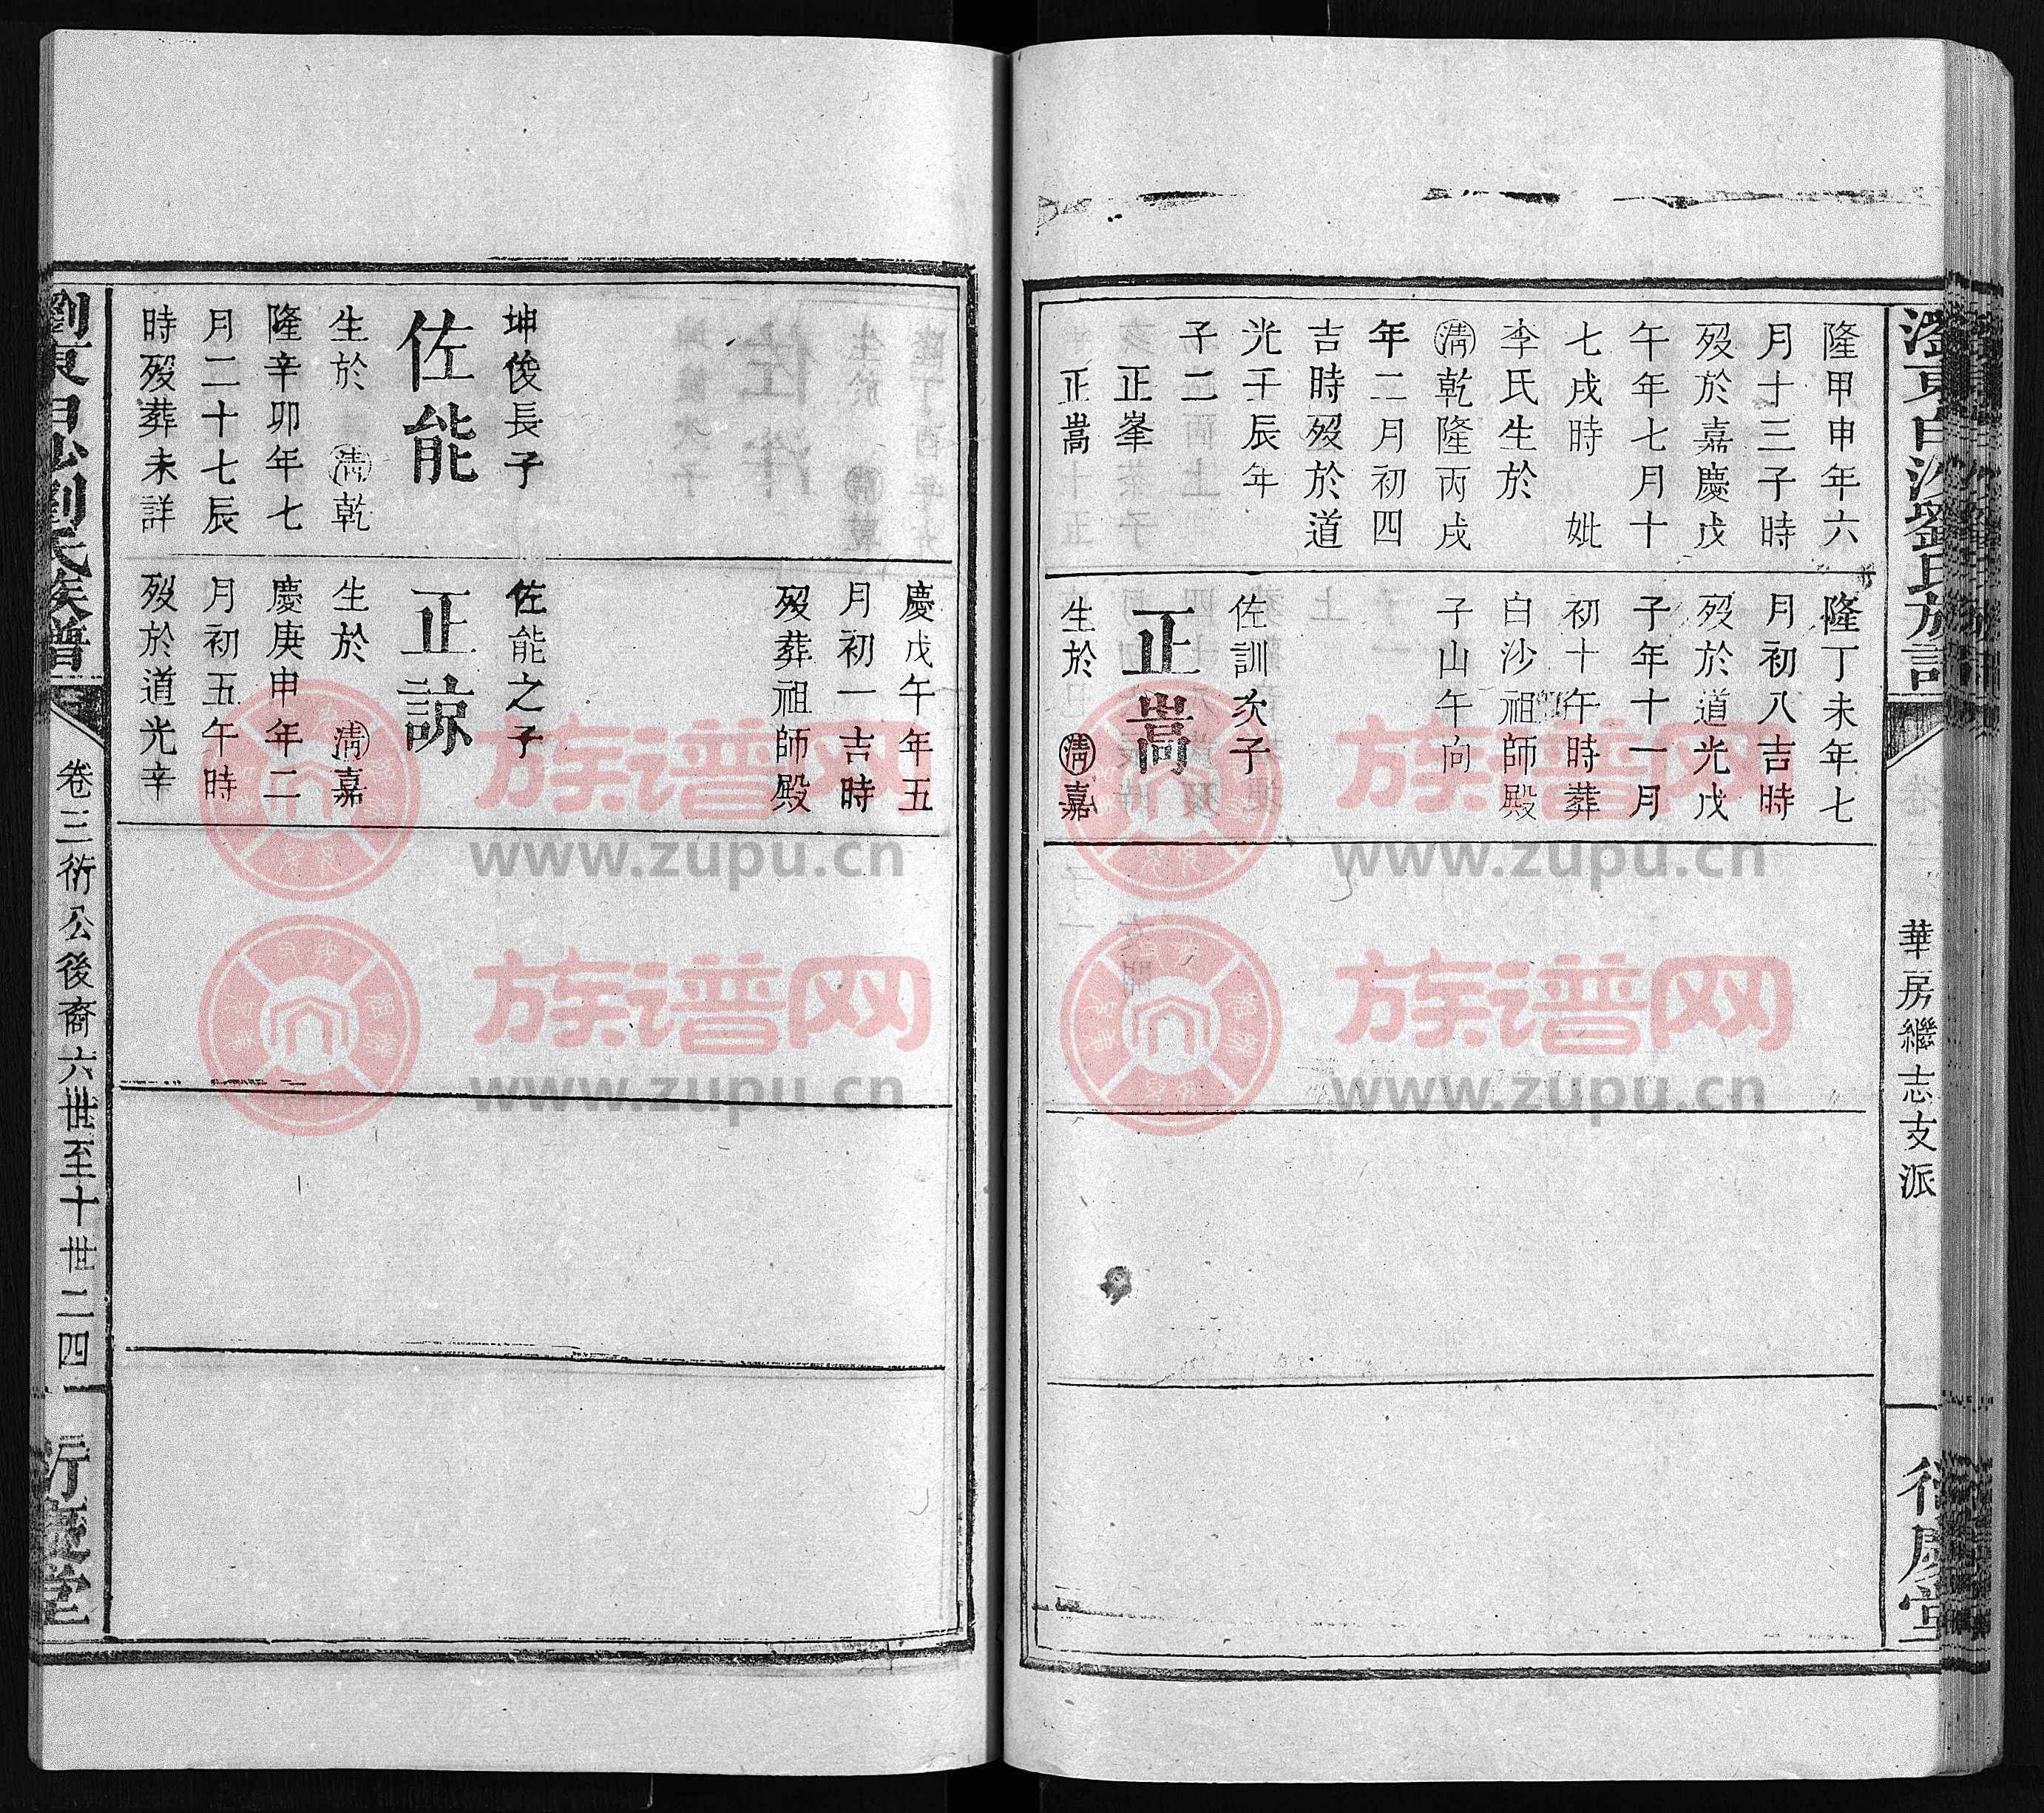 華房繼志支派
隆甲申年六
月十三子時
殁於嘉慶戊
午年七月十
七戌時 妣
李氏生於
清乾隆丙戌
年二月初四
吉時殁於道
光壬辰年
子二
正峯
正嵩
隆丁未年七
月初八吉時
殁於道光戊
子年十一月
初十午時葬
白沙祖師殿
子山午向
佐訓次子
正嵩
生於 清嘉
慶戊午年五
月初一吉時
殁葬祖師殿
坤俊長子
佐能
生於 清乾
隆辛卯年七
月二十七辰
時殁葬未詳
佐能之子
正諒
生於 清嘉
慶庚申年二
月初五午時
殁於道光辛
劉氏族譜
卷三衍公後裔六世至十世二四
衍慶堂
族谱网
www.zupu.cn
族谱网
www.zupu.cn
族谱网
www.zupu.cn
族谱网
www.zupu.cn